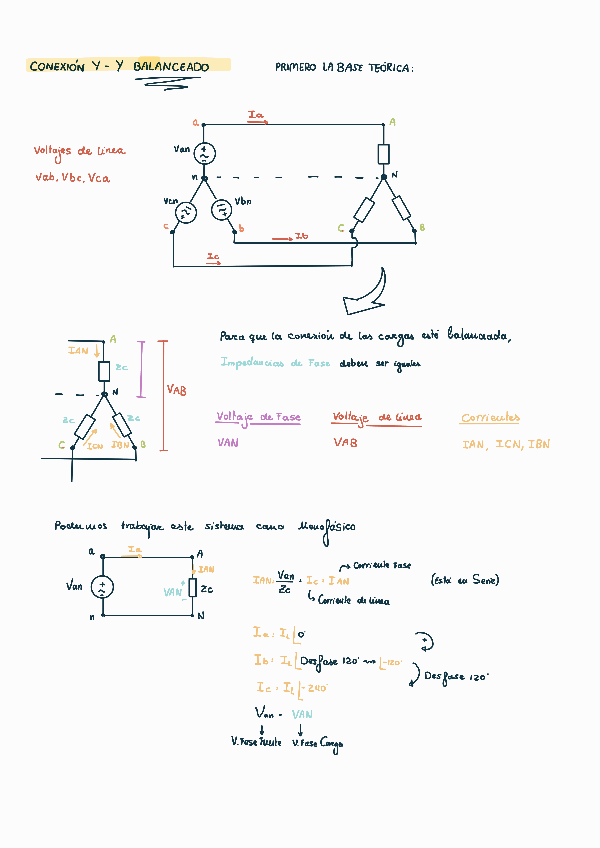 CONEXIÓN Y - Y BALANCEADO
PRIMERO LA BASE TEÓRICA:
Voltajes de Línea
Vab, Vbc, Vca
Ia
a
A
Van
n
N
Vcn
Vbn
c
b
C
B
Ib
Ic
Para que la conexión de las cargas esté balanceada,
Impedancias de Fase deben ser iguales
A
IAN
Zc
N
VAB
Zc
Zc
C
ICN
IBN
B
Voltaje de Fase
Voltaje de Línea
Corrientes
VAN
VAB
IAN, ICN, IBN
Podemos trabajar este sistema como Monofásico
a
Ia
A
IAN
Van
VAN
Zc
n
N
Corriente Fase
IAN = Van/Zc = Ic = IAN
(Está en Serie)
Corriente de Línea
Ia = IL 0°
Ib = IL Desfase 120° → -120°
Desfase 120°
Ic = IL -240°
Van = VAN
V. Fase Fuente
V. Fase Carga